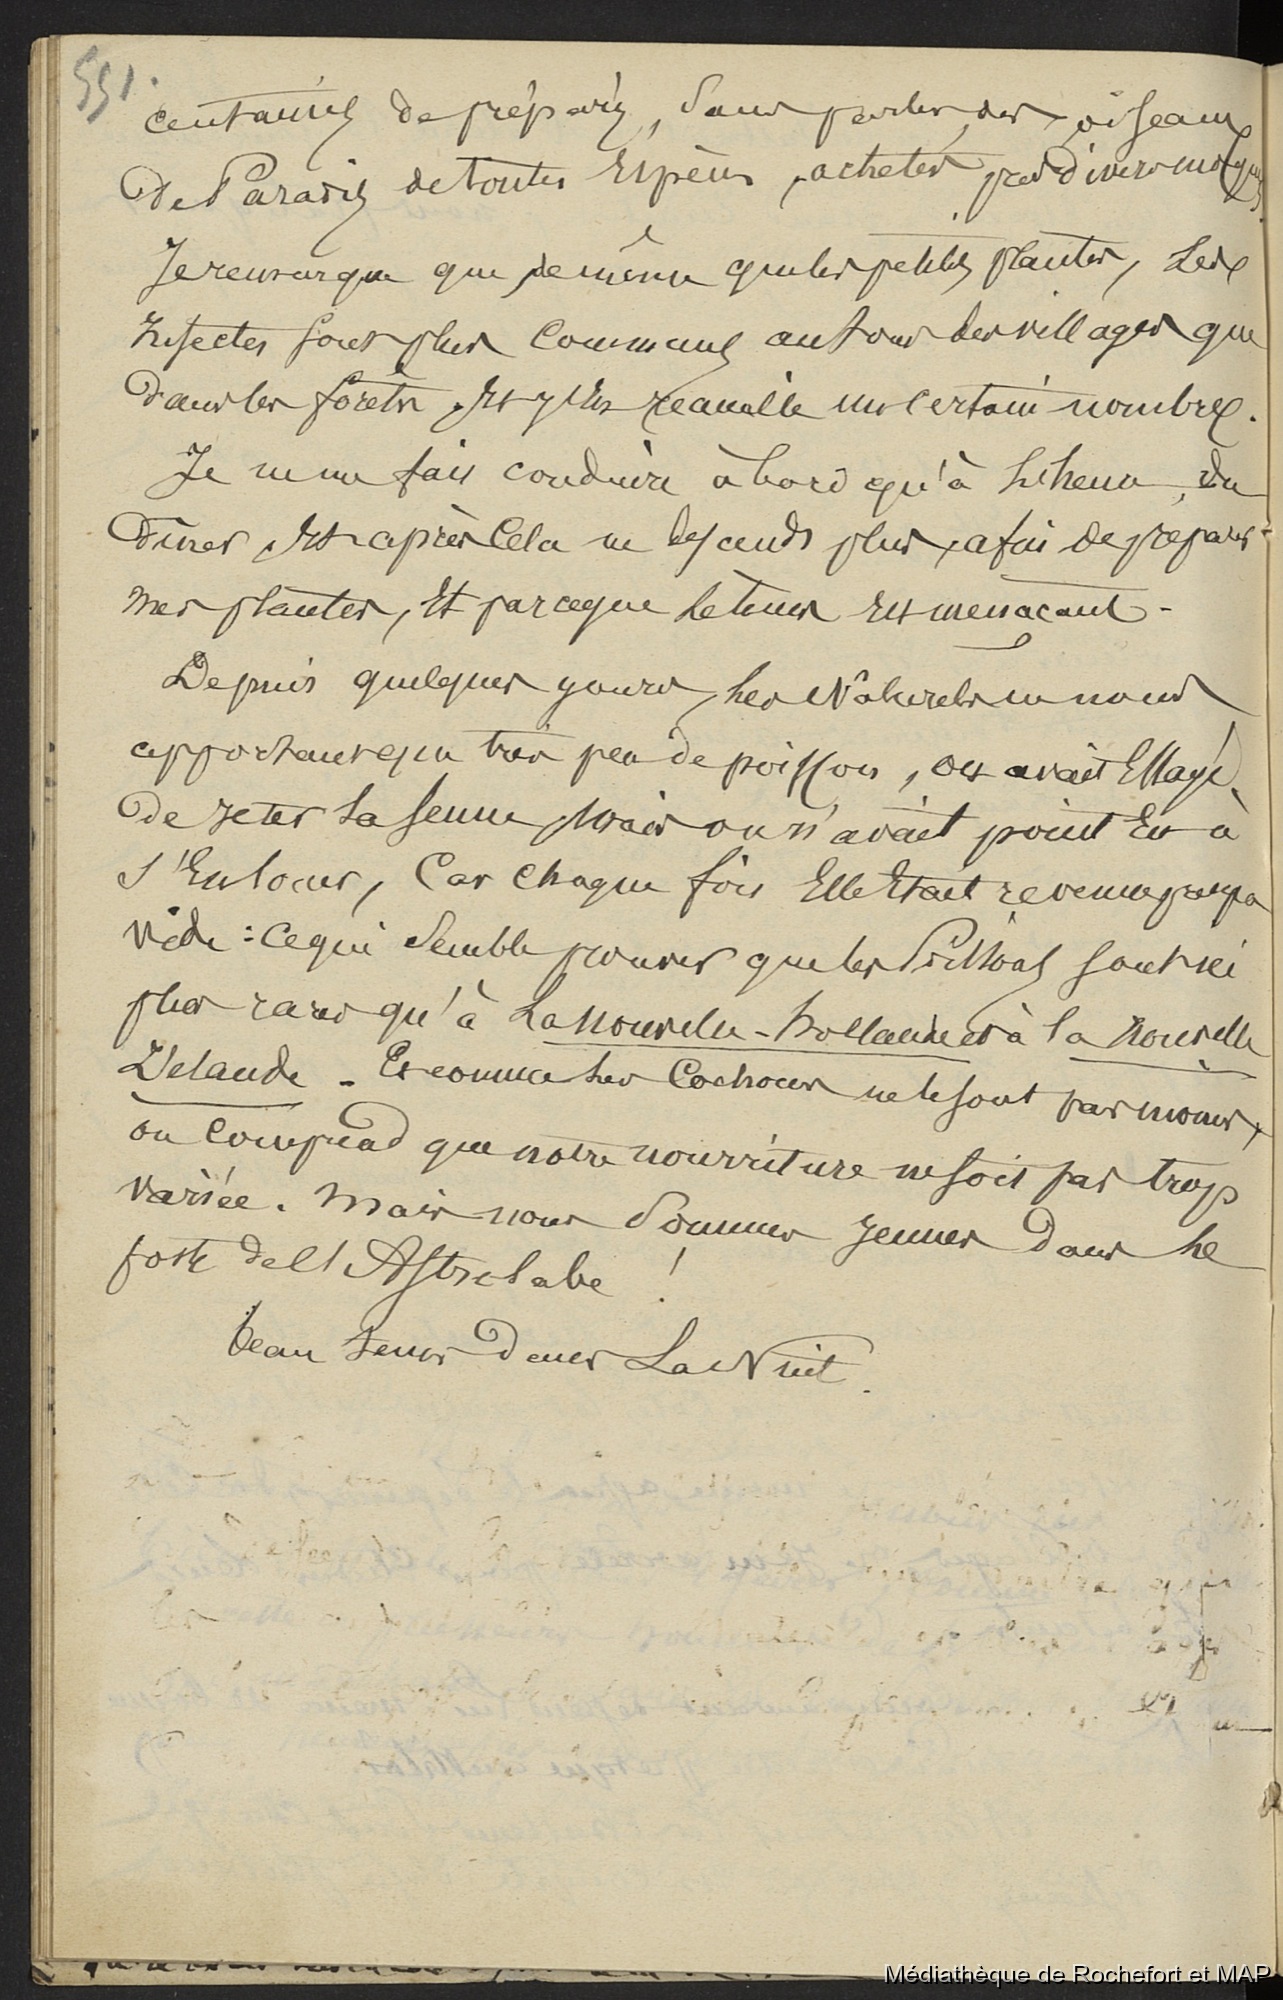 551.
centaines de préparés, sans parler des oiseaux
De Paradis de toutes Espèces, achetés par divers
Je remarque que de même que les petites plantes, Les
Insectes sont plus Communs autour des villages que
dans les forêts, Et j'y en recueille un certain nombre.
Je ne me fais conduire à bord qu'à L'heure du
Dîner, Et après Cela ne descends plus, afin de préparer
mes plantes, Et parceque Le tems Est menaçant.
Depuis quelques jours, les Naturels ne nous
apportent que très peu de poisson, on avait Essayé
De jeter la Senne, Mais on n'avait point Eu à
s'En louer, Car chaque fois Elle Etait revenue presque
vide : ce qui semble prouver que les Poissons sont ici
plus rares qu'à La Nouvelle-Hollande et à la Nouvelle
Zélande. Et comme les Cochons ne le sont pas moins,
on Comprend que notre nourriture ne soit pas trop
variée. Mais nous Sommes jeunes Dans le
poste de l'Astrolabe !
beau tems Dans La Nuit.
Médiathèque de Rochefort et MAP